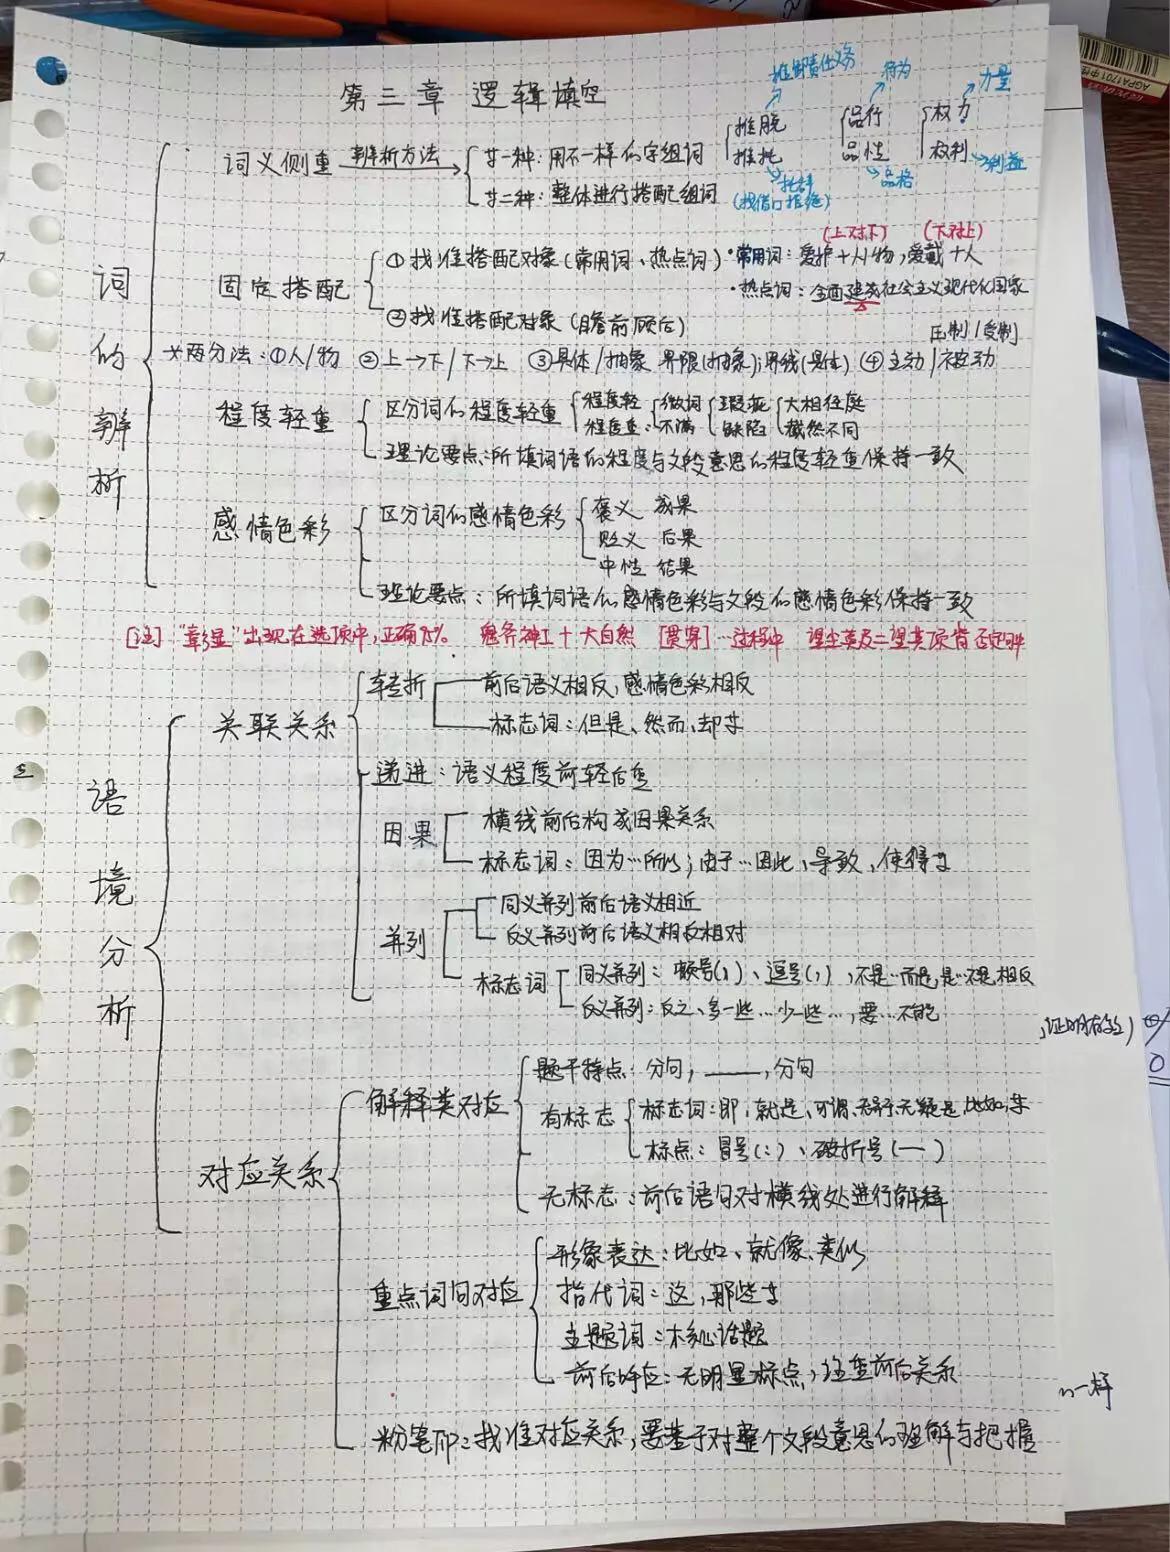 第三章 逻辑填空
词的辨析
词义侧重 辨析方法
第一种：用不一样的字组词
第二种：整体进行搭配组词
推脱 推卸责任义务
推托 (找借口拒绝)
品行 行为
品性 品格
权力 力量
权利 利益
固定搭配
①找准搭配对象(常用词、热点词)
·常用词：爱护+人/物，爱戴+人
(上对下) (下对上)
·热点词：全面建成社会主义现代化国家
②找准搭配对象(瞻前顾后)
压制/受制
两分法：①人/物 ②上→下/下→上 ③具体/抽象 界限(抽象)；界线(具体) ④主动/被动
程度轻重
区分词的程度轻重
程度轻：微词 瑕疵 大相径庭
程度重：不满 缺陷 截然不同
理论要点：所填词语的程度与文段意思的程度轻重保持一致
感情色彩
区分词的感情色彩
褒义 成果
贬义 后果
中性 结果
理论要点：所填词语的感情色彩与文段的感情色彩保持一致
[注] "彰显"出现在选项中，正确75% 鬼斧神工+大自然 [贯穿]…过程中
语境分析
关联关系
转折
前后语义相反，感情色彩相反
标志词：但是、然而、却等
递进：语义程度前轻后重
因果
横线前后构成因果关系
标志词：因为…所以；由于…因此、导致、使得等
并列
同义并列前后语义相近
反义并列前后语义相反相对
标志词
同义并列：顿号(、)、逗号(，)，不是…而是，是…不是，相反
反义并列：反之、多一些…少一些…，要…不能
对应关系
解释类对应
题干特点：分句，____，分句
有标志
标志词：即，就是、可谓、无异于、无疑是、比如，等
标点：冒号(：)、破折号(——)
无标志：前后语句对横线处进行解释
重点词句对应
形象表达：比如、就像、类似
指代词：这，那些等
主题词：核心话题
前后呼应：无明显标点，注重前后关系
粉笔fp：找准对应关系，要基于对整个文段意思的理解与把握
一样